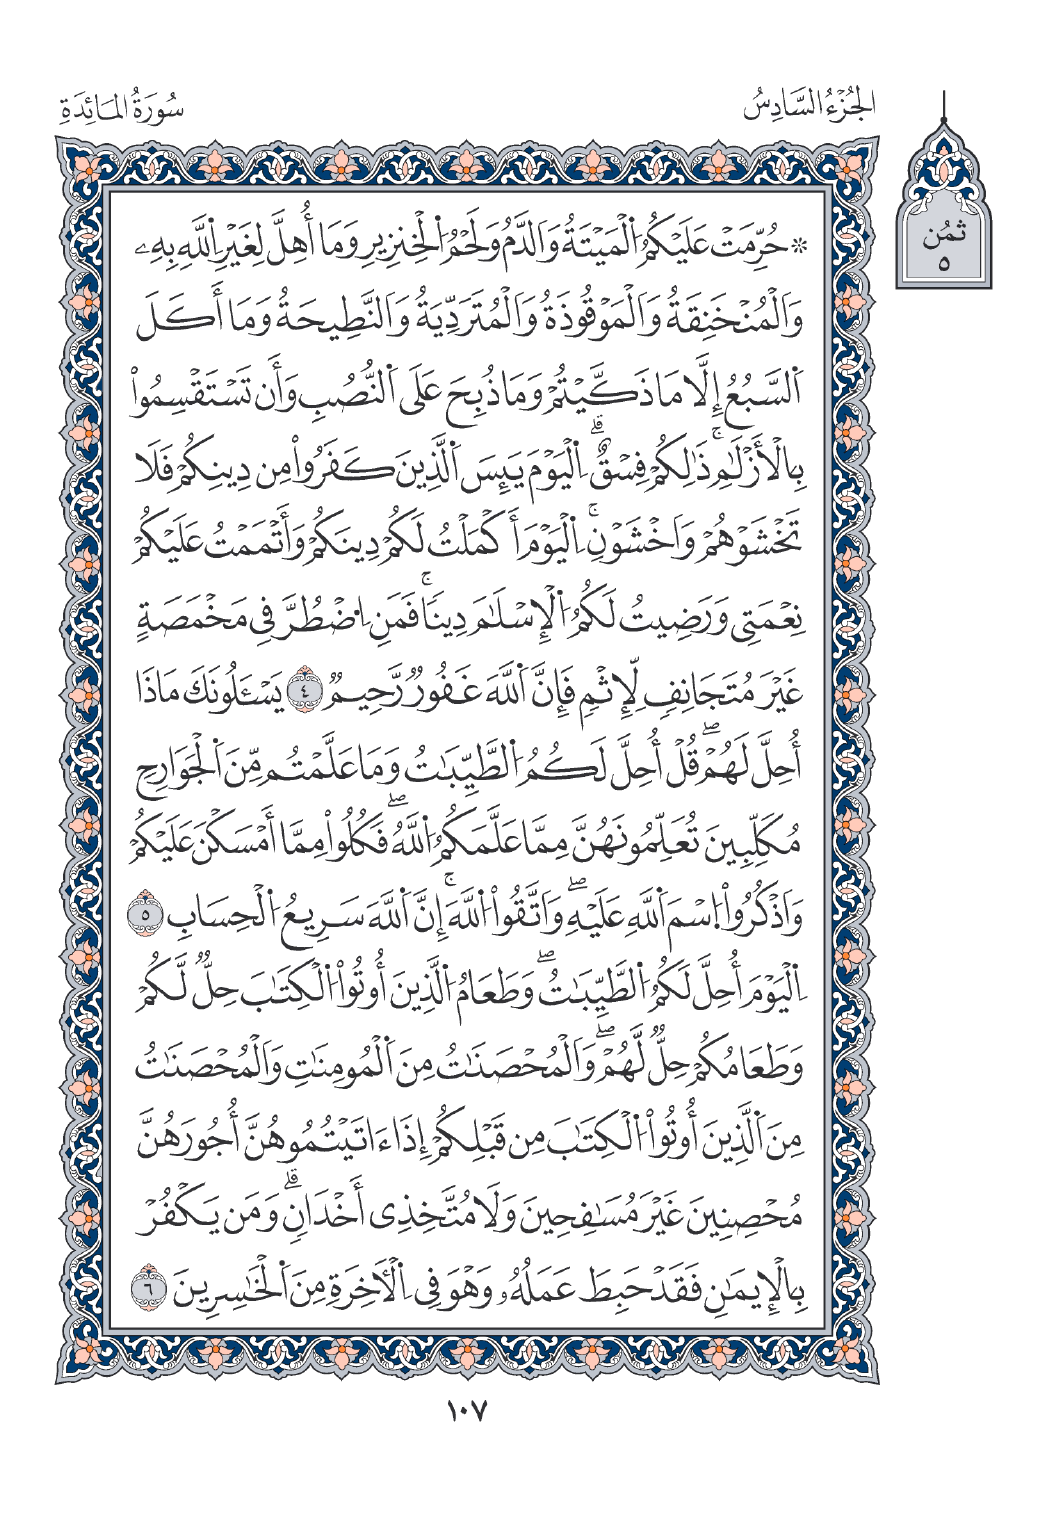 الجُزْءُ السَّادِسُ
سُورَةُ المَائِدَةِ
ثُمُن
٥
۞ حُرِّمَتْ عَلَيْكُمُ اُ۬لْمَيْتَةُ وَالدَّمُ وَلَحْمُ اُ۬لْخِنزِيرِ وَمَا أُهِلَّ لِغَيْرِ اِ۬للَّهِ بِهِۦ
وَالْمُنْخَنِقَةُ وَالْمَوْقُوذَةُ وَالْمُتَرَدِّيَةُ وَالنَّطِيحَةُ وَمَا أَكَلَ
اَ۬لسَّبُعُ إِلَّا مَا ذَكَّيْتُمْ وَمَا ذُبِحَ عَلَى اَ۬لنُّصُبِ وَأَن تَسْتَقْسِمُواْ
بِالْأَزْلَٰمِۚ ذَٰلِكُمْ فِسْقٌۗ اِ۬لْيَوْمَ يَئِسَ اَ۬لَّذِينَ كَفَرُواْ مِن دِينِكُمْ فَلَا
تَخْشَوْهُمْ وَاخْشَوْنِۚ اِ۬لْيَوْمَ أَكْمَلْتُ لَكُمْ دِينَكُمْ وَأَتْمَمْتُ عَلَيْكُمْ
نِعْمَتِي وَرَضِيتُ لَكُمُ اُ۬لْإِسْلَٰمَ دِيناٗۚ فَمَنِ اِ۟ضْطُرَّ فِي مَخْمَصَةٍ
غَيْرَ مُتَجَانِفٖ لِّإِثْمٖ فَإِنَّ اَ۬للَّهَ غَفُورٞ رَّحِيمٞ ٤ يَسْـَٔلُونَكَ مَاذَا
أُحِلَّ لَهُمْۖ قُلْ أُحِلَّ لَكُمُ اُ۬لطَّيِّبَٰتُ وَمَا عَلَّمْتُم مِّنَ اَ۬لْجَوَارِحِ
مُكَلِّبِينَ تُعَلِّمُونَهُنَّ مِمَّا عَلَّمَكُمُ اُ۬للَّهُۖ فَكُلُواْ مِمَّا أَمْسَكْنَ عَلَيْكُمْ
وَاذْكُرُواْ اُ۪سْمَ اَ۬للَّهِ عَلَيْهِۖ وَاتَّقُواْ اُ۬للَّهَۚ إِنَّ اَ۬للَّهَ سَرِيعُ اُ۬لْحِسَابِ ٥
اِ۬لْيَوْمَ أُحِلَّ لَكُمُ اُ۬لطَّيِّبَٰتُۖ وَطَعَامُ اُ۬لَّذِينَ أُوتُواْ اُ۬لْكِتَٰبَ حِلّٞ لَّكُمْ
وَطَعَامُكُمْ حِلّٞ لَّهُمْۖ وَالْمُحْصَنَٰتُ مِنَ اَ۬لْمُومِنَٰتِ وَالْمُحْصَنَٰتُ
مِنَ اَ۬لَّذِينَ أُوتُواْ اُ۬لْكِتَٰبَ مِن قَبْلِكُمْ إِذَا ءَاتَيْتُمُوهُنَّ أُجُورَهُنَّ
مُحْصِنِينَ غَيْرَ مُسَٰفِحِينَ وَلَا مُتَّخِذِي أَخْدَانٖۗ وَمَن يَكْفُرْ
بِالْإِيمَٰنِ فَقَدْ حَبِطَ عَمَلُهُۥ وَهْوَ فِي اِ۬لْأٓخِرَةِ مِنَ اَ۬لْخَٰسِرِينَ ٦
١٠٧